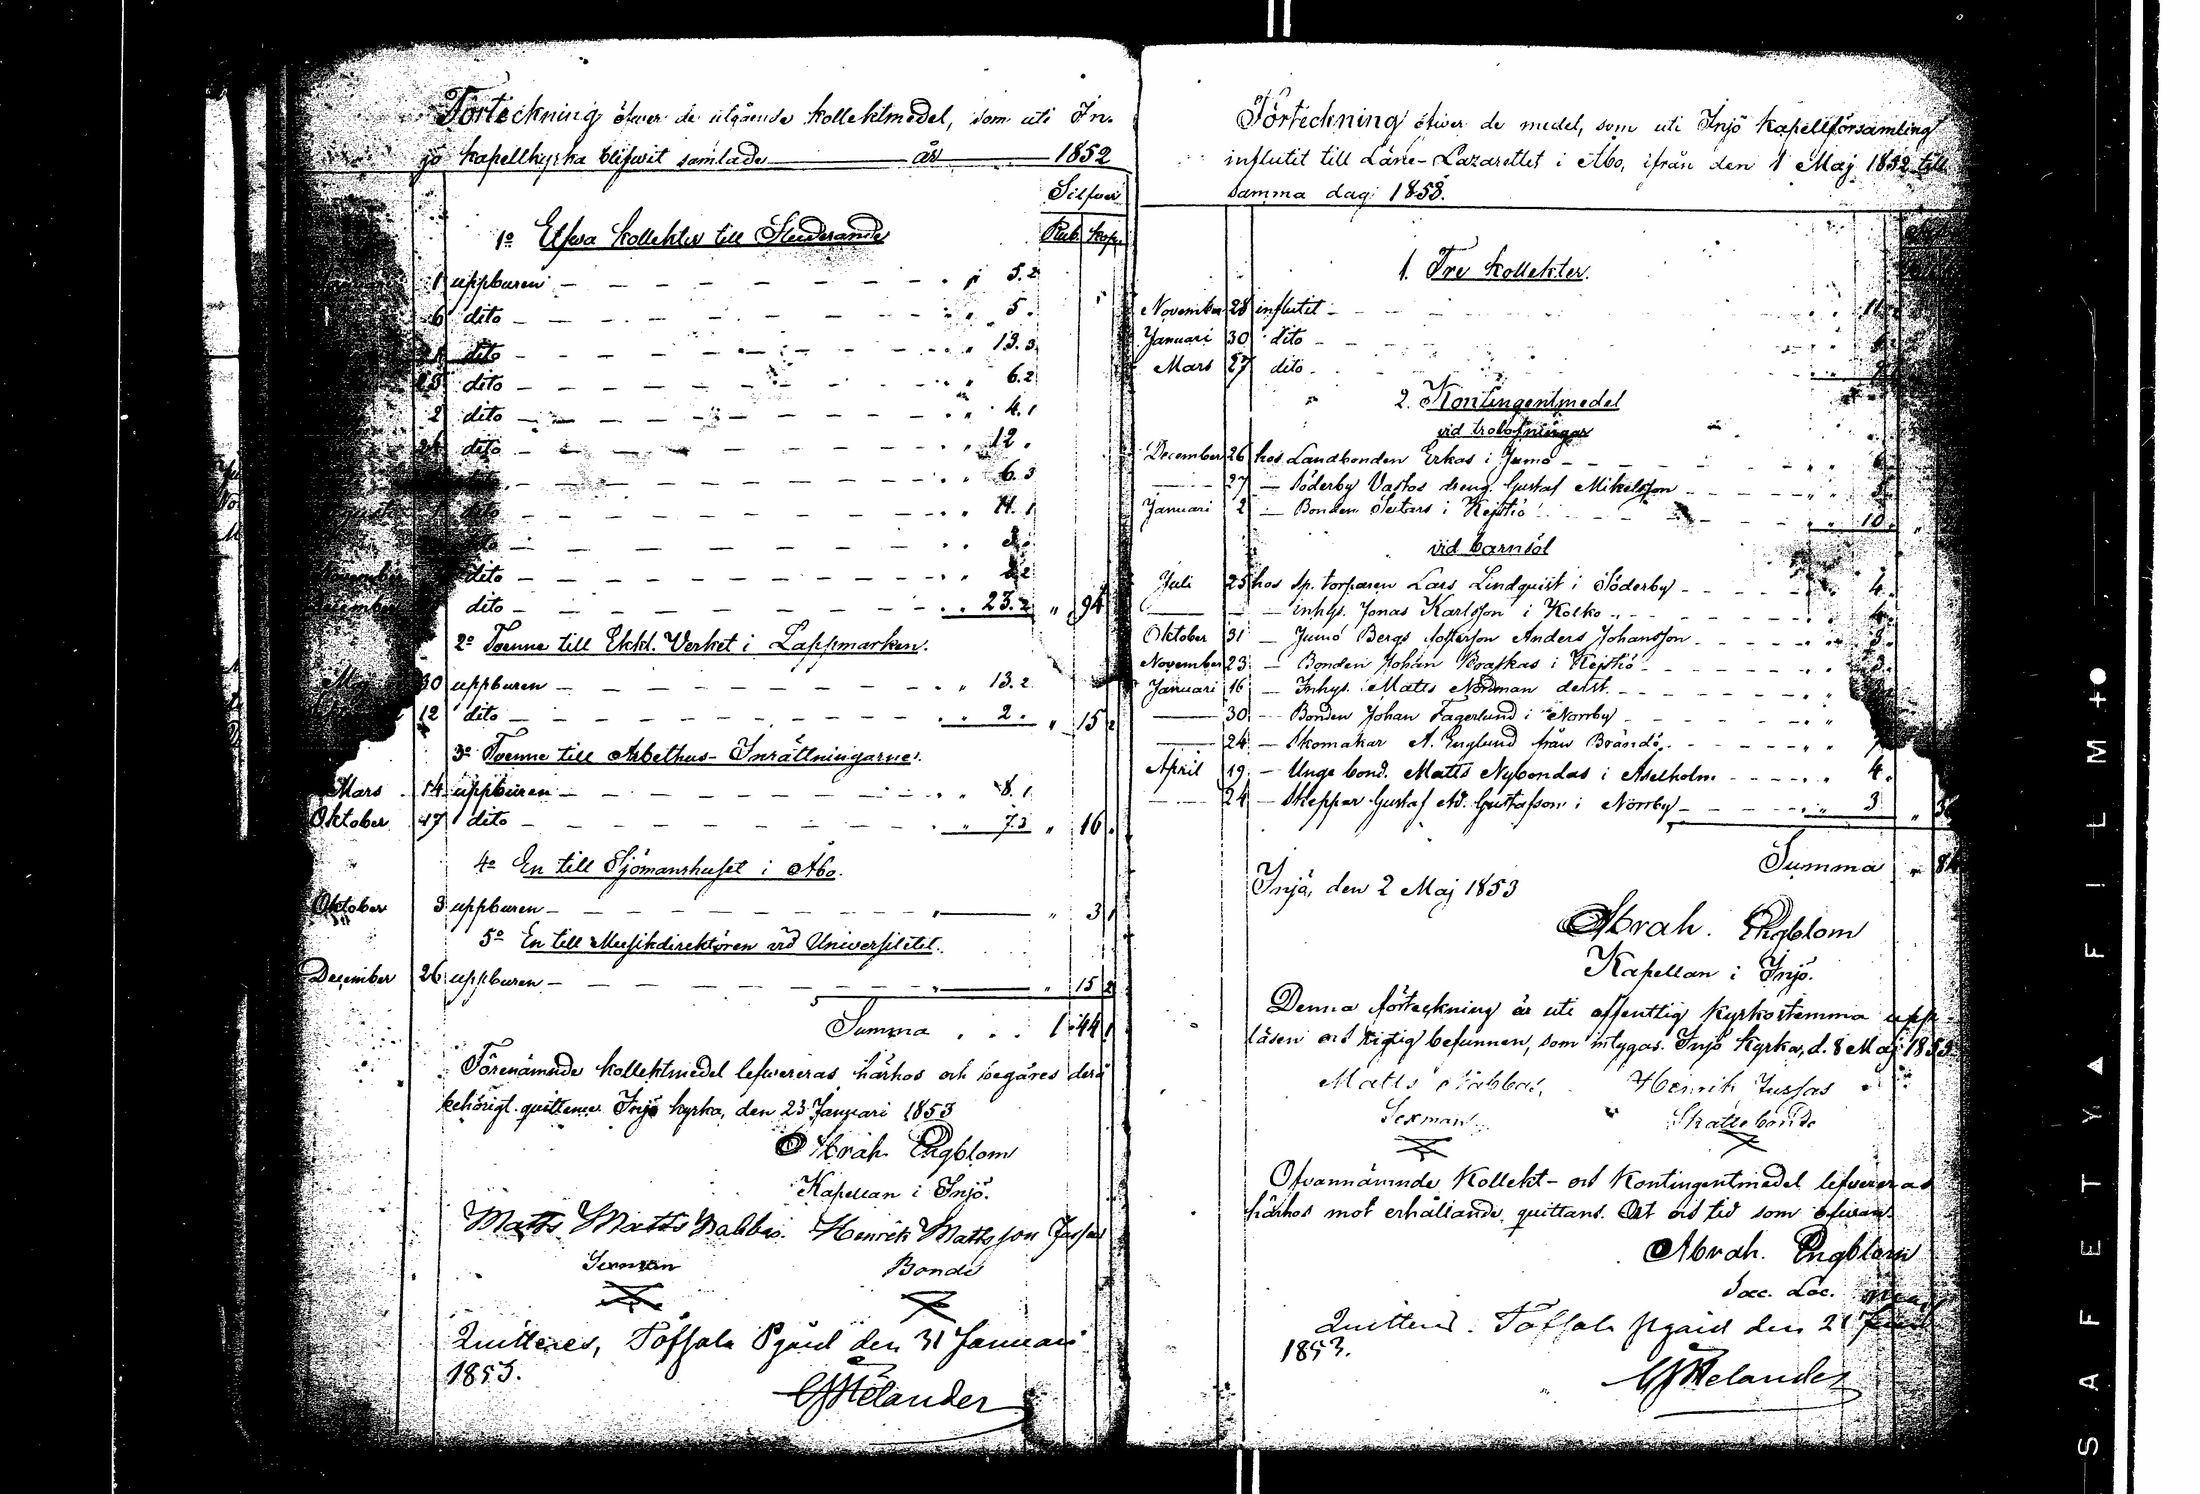 Förteckning öfwer de utgående kollektmedel, som uti In-
jö kapellkyrka blifwit samlade år 1852
Silfwer
Rub. Kop.
1o Elfwa kollekter till Studerande
1 uppburen 5.2
6 dito 5.
dito 13.3
25 dito 6.2
2 dito 4.1
dito 12.
6.3
dito 11.1
dito
November dito
December dito 23.2 " 94
2o Tvenne till Ekkl. Verket i Lappmarken.
Maj 30 uppburen 13.2
12 dito 2. " 15 2
3o Tvenne till Arbethus-Inrättningarne.
Mars 14 uppburen 8.1
Oktober 17 dito 7.3 " 16.
4o En till Sjömanshuset i Åbo.
Oktober 3 uppburen " 3 1
5o En till Musikdirektören vid Universitetet.
December 26 uppburen " 15 2
Summa . . . 1 44 1
Förenämnde kollektmedel lefwereras härhos och begäres derå
behörigt quittence Injö kyrka, den 23 Januari 1853
Abrah. Engblom
Kapellan i Injö.
Matts Matts Nabbas. Henrik Mattsson Jussas
Sexman Bonde
Quitteres, Töfsala Pgård den 31 Januari
1853.
CJMelander
Förteckning öfwer de medel, som uti Injö Kapellförsamling
influtit till Läne-Lazarettet i Åbo, ifrån den 1 Maj 1852 till
samma dag 1853.
1. Tre kollekter.
November 28 influtet 11.
Januari 30 dito
Mars 27 dito
2. Kontingentmedel
vid trolofningar
December 26 hos Landbonden Erkas i Jumo
27 Söderby Vastos dreng Gustaf Mikelsson
Januari 2 Bonden Seitars i Kejstiö 10.
vid barnsöl
Juli 25 hos Sp. torparen Lars Lindquist i Söderby 4.
inhys. Jonas Karlsson i Kolko 4.
Oktober 31 Jumo Bergs Anders Johansson 3.
November 23 Bonden Johan Braskas i Kejstiö 3.
Januari 16 Inhys. Matts Nordman derst.
30 Bonden Johan Fagerlund i Norrby
24 Skomakar A. Englund från Brändö
April 19 Unge bond. Matts Nybondas i Åselholm 4.
24 Skeppar Gustaf Ad. Gustafson i Norrby 3
Summa
Injö, den 2 Maj 1853
Abrah. Engblom
Kapellan i Injö.
Denna förteckning är uti offentlig kyrkostemma upp-
läsen och rigtig befunnen, som intygas. Injö kyrka, d. 8 Maj 1853
Matts Nabbas, Henrik Jussas
Sexman Skattebonde
Ofvannämnde Kollekt- och Kontingentmedel lefwereras
härhos mot erhållande quittans. Ort och tid som ofwan.
Abrah. Engblom
Sac. Loc.
Quitteras. Töfsala Pgård den 21
1853.
CJMelander
SAFETY▲FILM